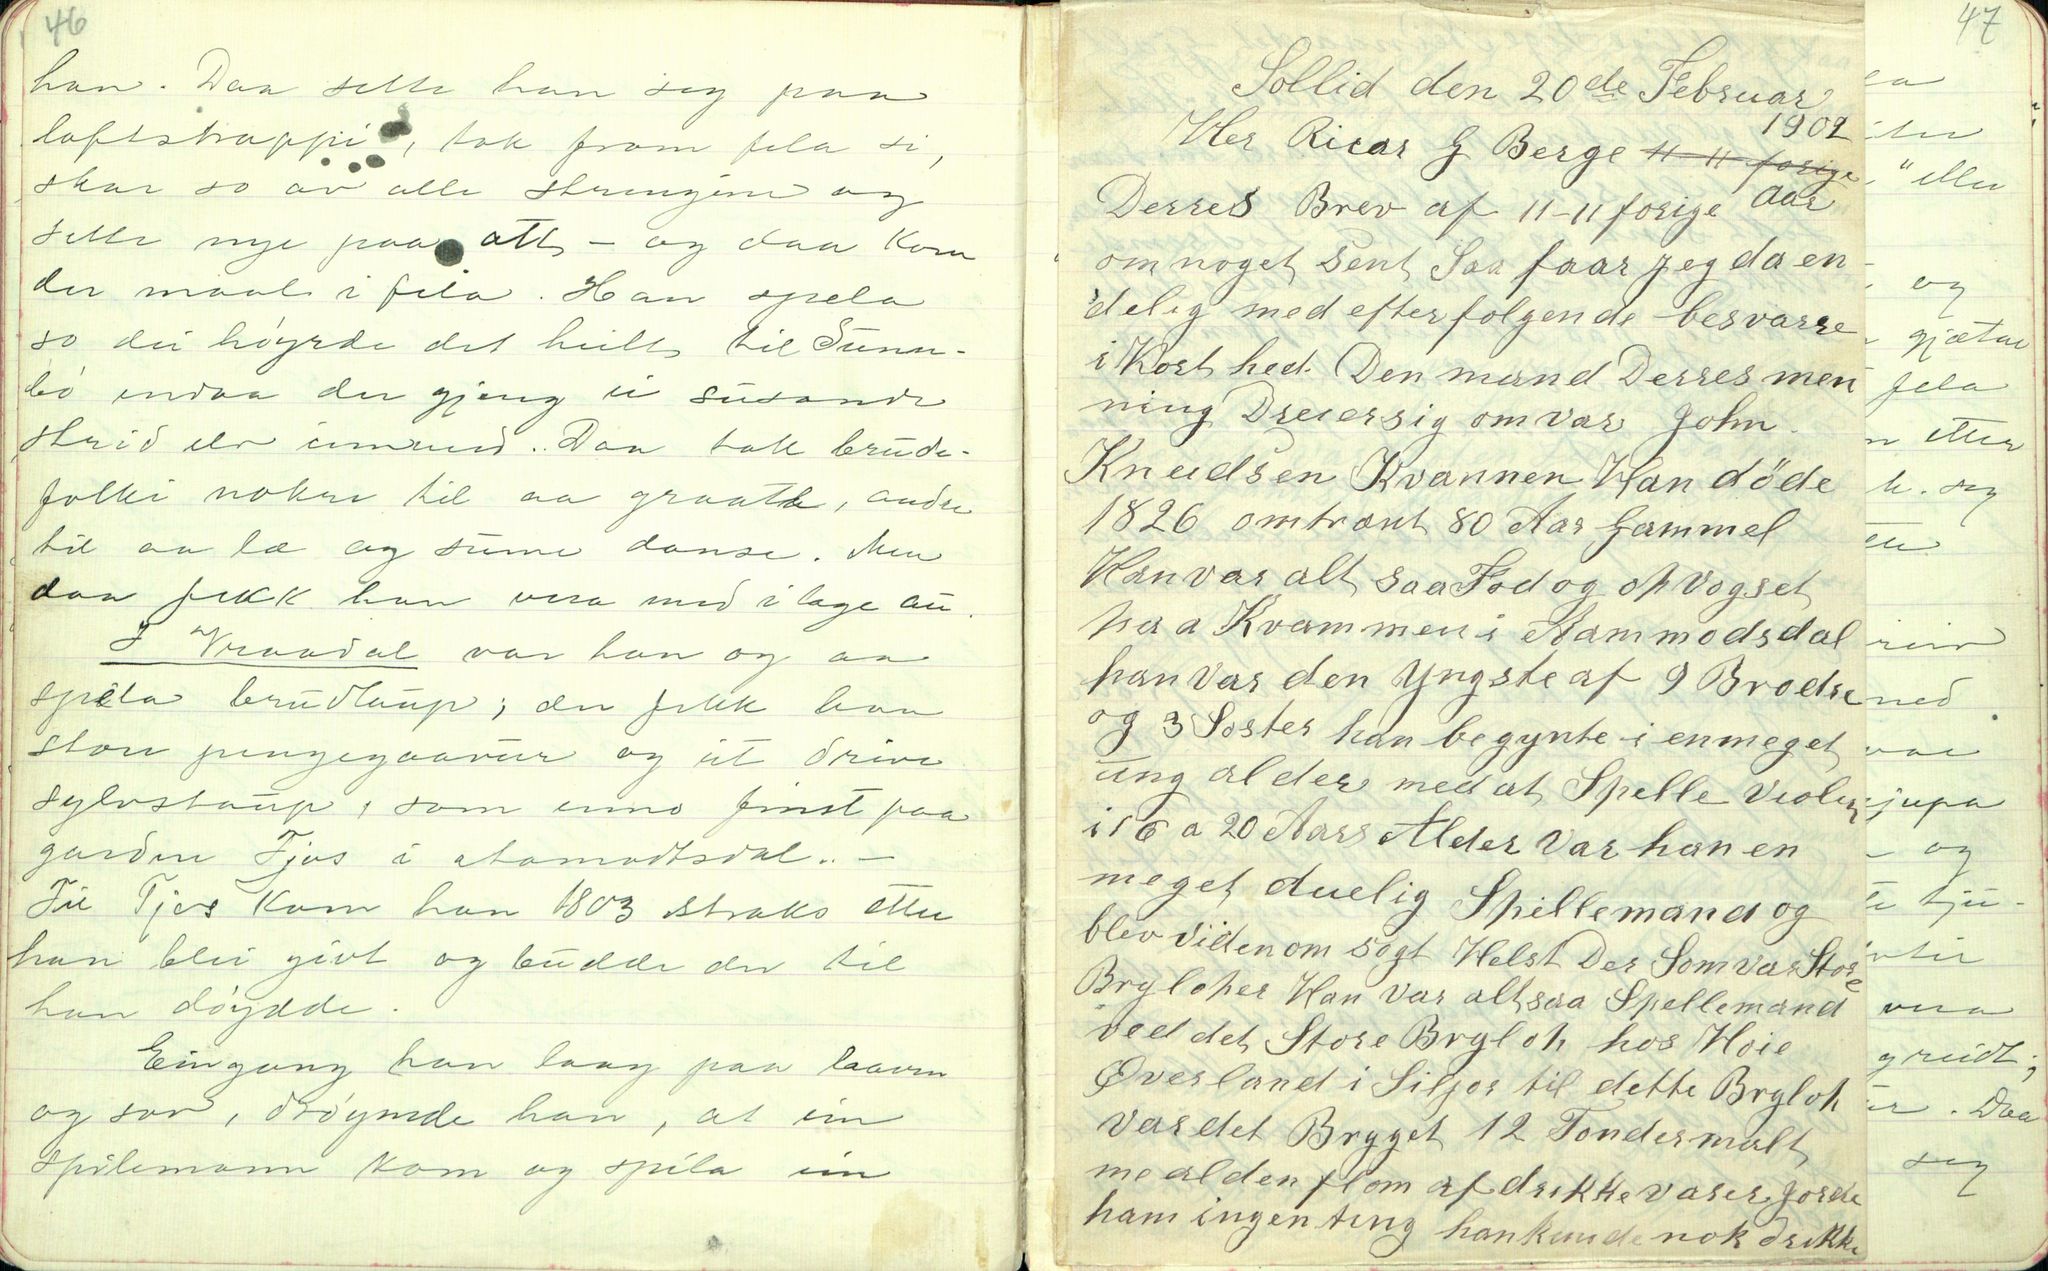 46
han. Daa sette han seg paa
loftstrappi, tok fram fela si,
skar so av alle strengjine og
sette nye paa att – og daa kom
der maal i fela. Han spela
so dei høyrde det heilt til Sunn-
bø endaa der gjeng ei susande
strid elv imyud. Daa tok brude-
folki nokre til aa graate, andre
til aa læ og sume danse. Men
daa fekk han vera med i lage au.
I Vraadal var han og aa
spela brudlaup; der fekk han
store pengegaavur og eit drive
sylvstaup, som enno finst paa
garden Fjos i Aamodtsdal. –
Til Fjos kom han 1803 straks etter
han blei givt og budde der til
han døydde.
Eingong han laag paa laaven
og sov, drøymde han, at ein
spilemann kom og spila ein
47
Sollid den 20de Februar
1902
Her Ricar G Berge 11 11 forige
Derres Brev af 11-11 forige Aar
om noget sent Saa faar jeg da en
delig med efterfolgende besvarre
i Kort hed. Den mand Derres men
ning Dreiersig om var John
Knudsen Kvannen Han døde
1826 omtrænt 80 Aar Gammel
Han var alt saa Fød og op vogset
paa Kvammen i Aammodsdal
han var den Yngste af 9 Brødre
og 3 Søster han begynte i en meget
ung alder med at Spelle Violin
i 16 a 20 Aars Alder var han en
meget duelig Spillemand og
blev viden om søgt Helst Der Som var Store
Bryloper Han var altsaa Spellemand
ved det Store Brylop hos Hoie
Øverland i Siljor til dette Brylop
var det Brygget 12 Tønder malt
me al den flom af drikke varer Jorde
ham ingenting han kunde nok drikke
" eller
og
gjætar
fela
etter
seg
ned
og
vera
greidt;
Daa
seg